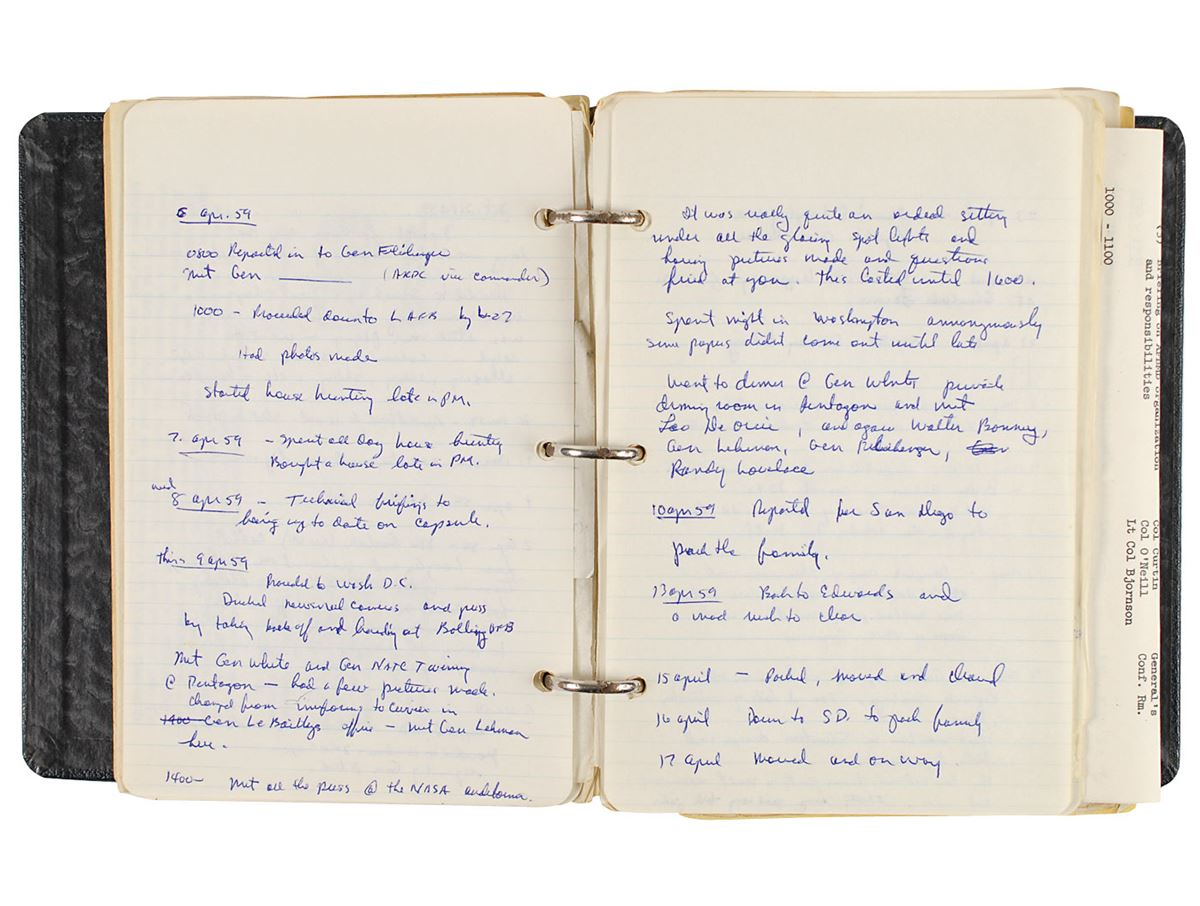 6 apr. 59
0800 Reported in to Gen
met Gen ______ (ARDC vice comander)
1000 – Proceeded down to LAFB by
Had photos made
started house hunting late in PM.
7. apr 59 – Spent all Day house hunting
Bought a house late in PM.
wed
8 apr 59 – Technical briefings to
bring up to date on capsule.
thurs 9 apr 59
Proceeded to Wash D.C.
Ducked newsreel cameras and press
by taking back off and landing at Bolling AFB
Met Gen White and Gen Nate Twining
@ Pentagon – had a few pictures made.
changed from uniforms to civvies in
1400 Gen Le Baillys office – met Gen Lehman
here.
1400– Met all the press @ the NASA
It was really quite an ordeal sitting
under all the glaring spot lights and
having pictures made and questions
fired at you. This lasted until 1600.
Spent night in Washington annonymously
some papers didnt come out until late
Went to dinner @ Gen Whites private
dining room in Pentagon and met
Leo De Orsie, and again Walter Bonney,
Gen Lehman, Gen
Randy Lovelace
10 apr 59 Reported for San Diego to
pack the family.
13 apr 59 Back to Edwards and
a mad rush to clear
15 april – Packed, moved and cleared
16 april Down to S.D. to pack family
17 april Moved and on way.
1000 - 1100
(3) Briefing on AFMDM organization
and responsibilities
Col Curtin
Col O'Neill
Lt Col Bjornson
General's
Conf. Rm.